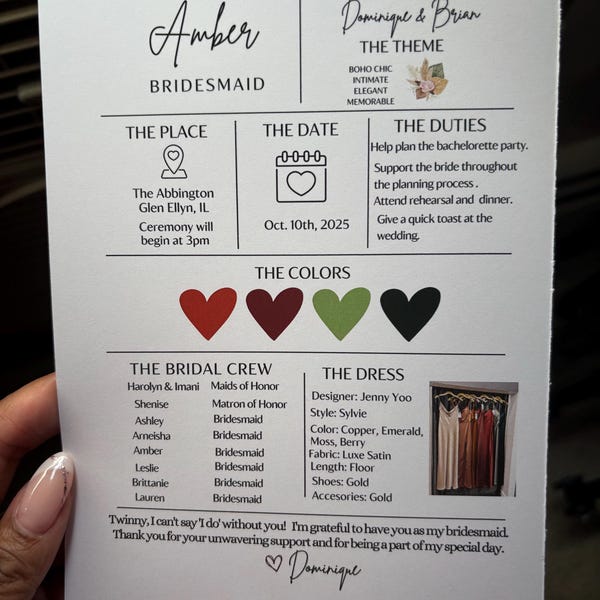 Amber
BRIDESMAID
Dominique & Brian
THE THEME
BOHO CHIC
INTIMATE
ELEGANT
MEMORABLE
THE PLACE
The Abbington
Glen Ellyn, IL
Ceremony will
begin at 3pm
THE DATE
Oct. 10th, 2025
THE DUTIES
Help plan the bachelorette party.
Support the bride throughout
the planning process .
Attend rehearsal and dinner.
Give a quick toast at the
wedding.
THE COLORS
THE BRIDAL CREW
Harolyn & Imani Maids of Honor
Shenise Matron of Honor
Ashley Bridesmaid
Ameisha Bridesmaid
Amber Bridesmaid
Leslie Bridesmaid
Brittanie Bridesmaid
Lauren Bridesmaid
THE DRESS
Designer: Jenny Yoo
Style: Sylvie
Color: Copper, Emerald,
Moss, Berry
Fabric: Luxe Satin
Length: Floor
Shoes: Gold
Accesories: Gold
Twinny, I can't say 'I do' without you! I'm grateful to have you as my bridesmaid.
Thank you for your unwavering support and for being a part of my special day.
Dominique